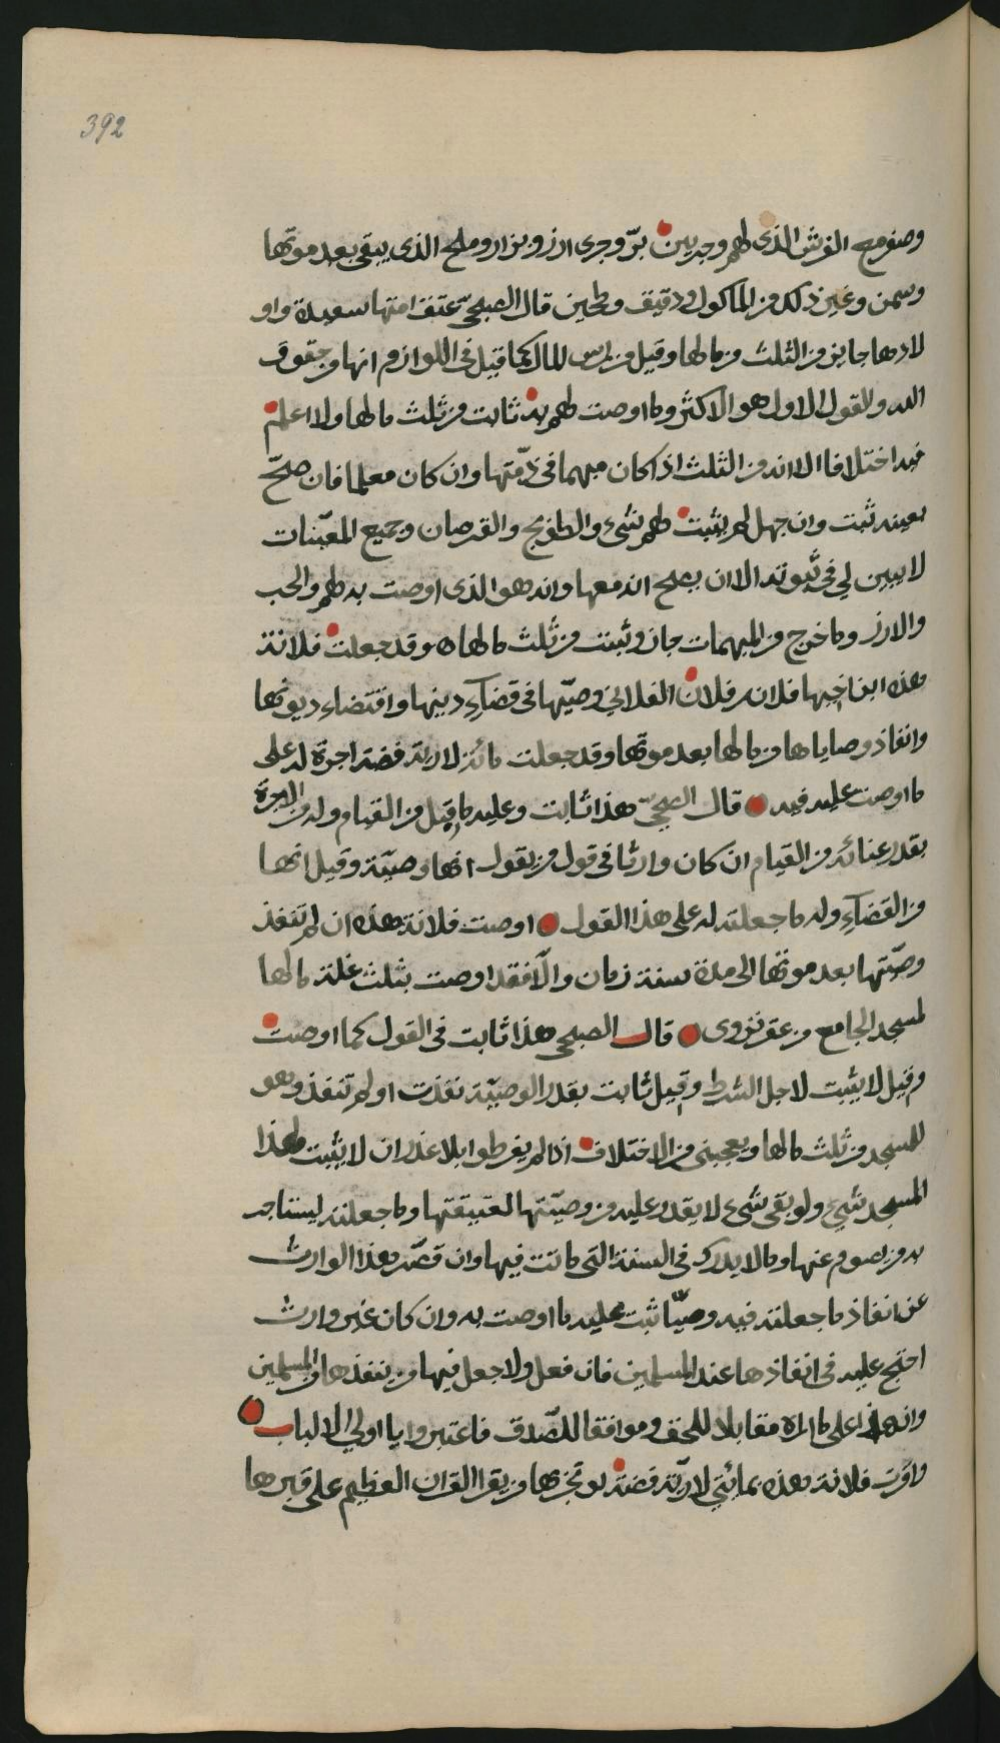 392
وصفرمج الفرش الذي لهم وجريين برّ وجرى ارز وبزار وملح الذي يبقى بعد موتها
وسمن وغير ذلك من الماكول ودقيق وطحين قال الصبحيّ عتق امتها سعيدة واو
لادها جايز من الثلث من مالها وقيل من راس المال كما قيل في اللوازم انها من حقوق
الله والقول الاول هو الاكثر وما اوصت لهم به ثابت من ثلث مالها ولا اعلم
فيه اختلافا الا انه من الثلث اذا كان مبهما في ذمّتها وان كان معلما فان صحّ
بعينه ثبت وان جهل لم يثبت لهم شيء والطوبج والقرصان وجميع المعيّنات
لا يبين لي في ثبوته الا ان يصح انه معها وانه هو الذي اوصت به لهم والحب
والارز وما خرج من المبهمات جاز وثبت من ثلث مالها ه وقد جعلت فلانة
هذه ابن اخيها فلان بن فلان الفلاني وصيّها في قضآء دينها واقتضاء ديونها
وانفاذ وصاياها من مالها بعد موتها وقد جعلت مائة لارية فضة اجرة له على
ما اوصت عليه فيه قال الصبحيّ هذا ثابت وعليه ما قبل من القيام وله من الاجرة
بقدر عنائه من القيام ان كان وارثا في قول من يقول انها وصيّة وقيل انها
من القضآء وله ما جعلته له على هذا القول اوصت فلانة هذه ان لم تنفذ
وصيّتها بعد موتها الى مدة سنة زمان والّا فقد اوصت بثلث غلة مالها
لمسجد الجامع من عقر نزوى قال الصبحي هذا ثابت في القول كما اوصت
وقيل لا يثبت لاجل الشرط وقيل ثابت بقدر الوصيّة نفذت او لم تنفذ وهو
للمسجد من ثلث مالها ويعجبني من الاختلاف اذا لم يفرطوا بلا عذر ان لا يثبت لهذا
المسجد شيء ولو بقي شيء لا يقدر عليه من وصيّتها لعتيقتها وما جعلته ليستاجر
به من يصوم عنها وما لا يدرك في السنة التي ماتت فيها وان قصّر هذا الوارث
عن انفاذ ما جعلته فيه وصيّا ثبت عليه ما اوصت به وان كان غير وارث
احتج عليه في انفاذها عند المسلمين فان فعل والا جعل فيها من ينفذها من المسلمين
وانه هذا على ما اراه مقابلا للحق وموافقا للصّدق فاعتبروا يا اولي الالباب
واقرّت فلانة هذه بمائتي لاريّة فضة لو تجزها من يقرا القران العظيم على قبرها